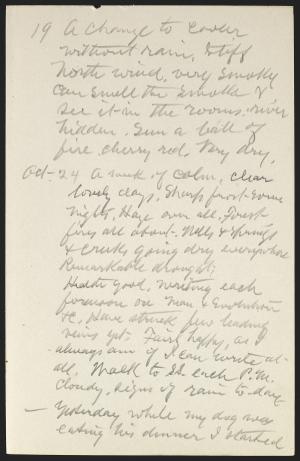 19 A change to cooler
without rain, stiff
North wind, very smoky
can smell the smoke &
see it in the rooms, river
hidden. Sun a ball of
fire cherry red. Very dry.
Oct. 24 A week of calm, clear
lovely days, sharp frost some
nights, Haze over all. Forest
fires all about. Wells & springs
& creeks going dry everywhere
Remarkable drought;
Health good, writing each
forenoon on Man & Evolution
&c, Have struck few leading
veins yet. Fairly happy, as I
always am if I can write at
all. Walk to SS each P.M.
Cloudy, signs of rain to-day.
— Yesterday while my dog was
eating his dinner I started